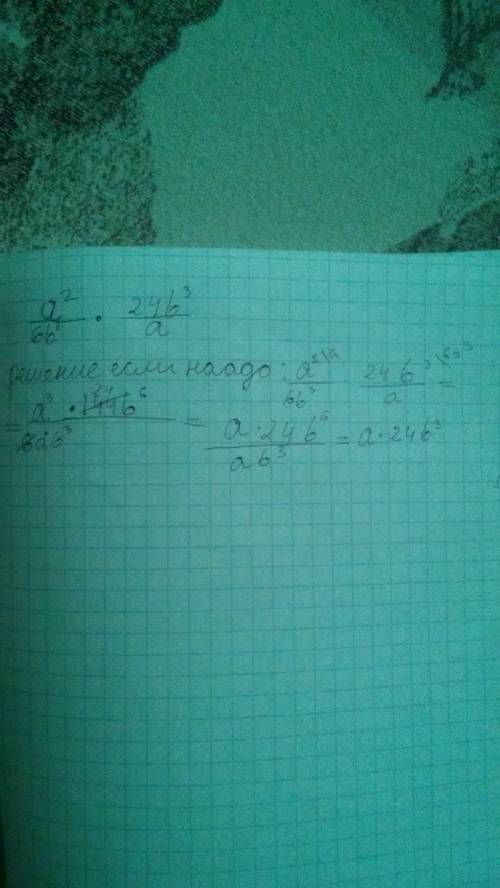 a² / 6b³ · 24b³ / a
решение если наадо: a²\a / 6b³ 24b³\6b³ / a =
= a³ · 144b⁶ / 6ab³ = a · 24b⁶ / ab³ = a · 24b³